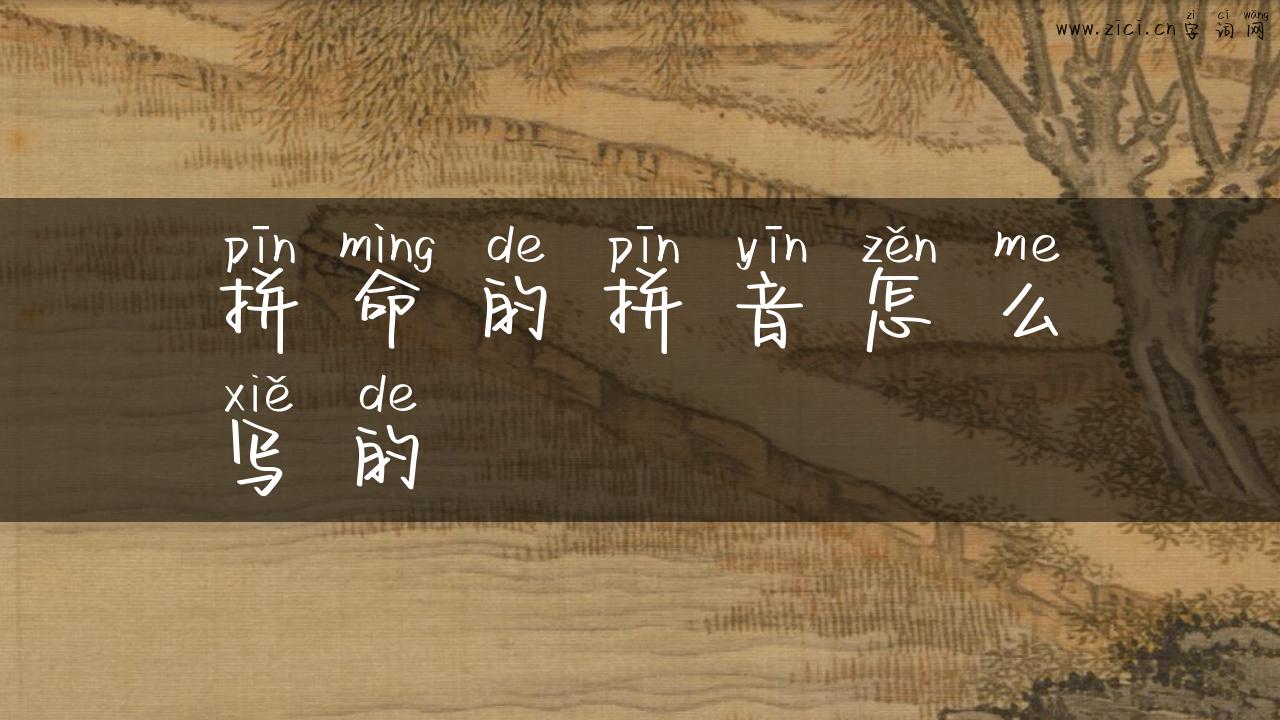 zì cí wǎng
www.zici.cn字词网
pīn mìng de pīn yīn zěn me
拼命的拼音怎么
xiě de
写的